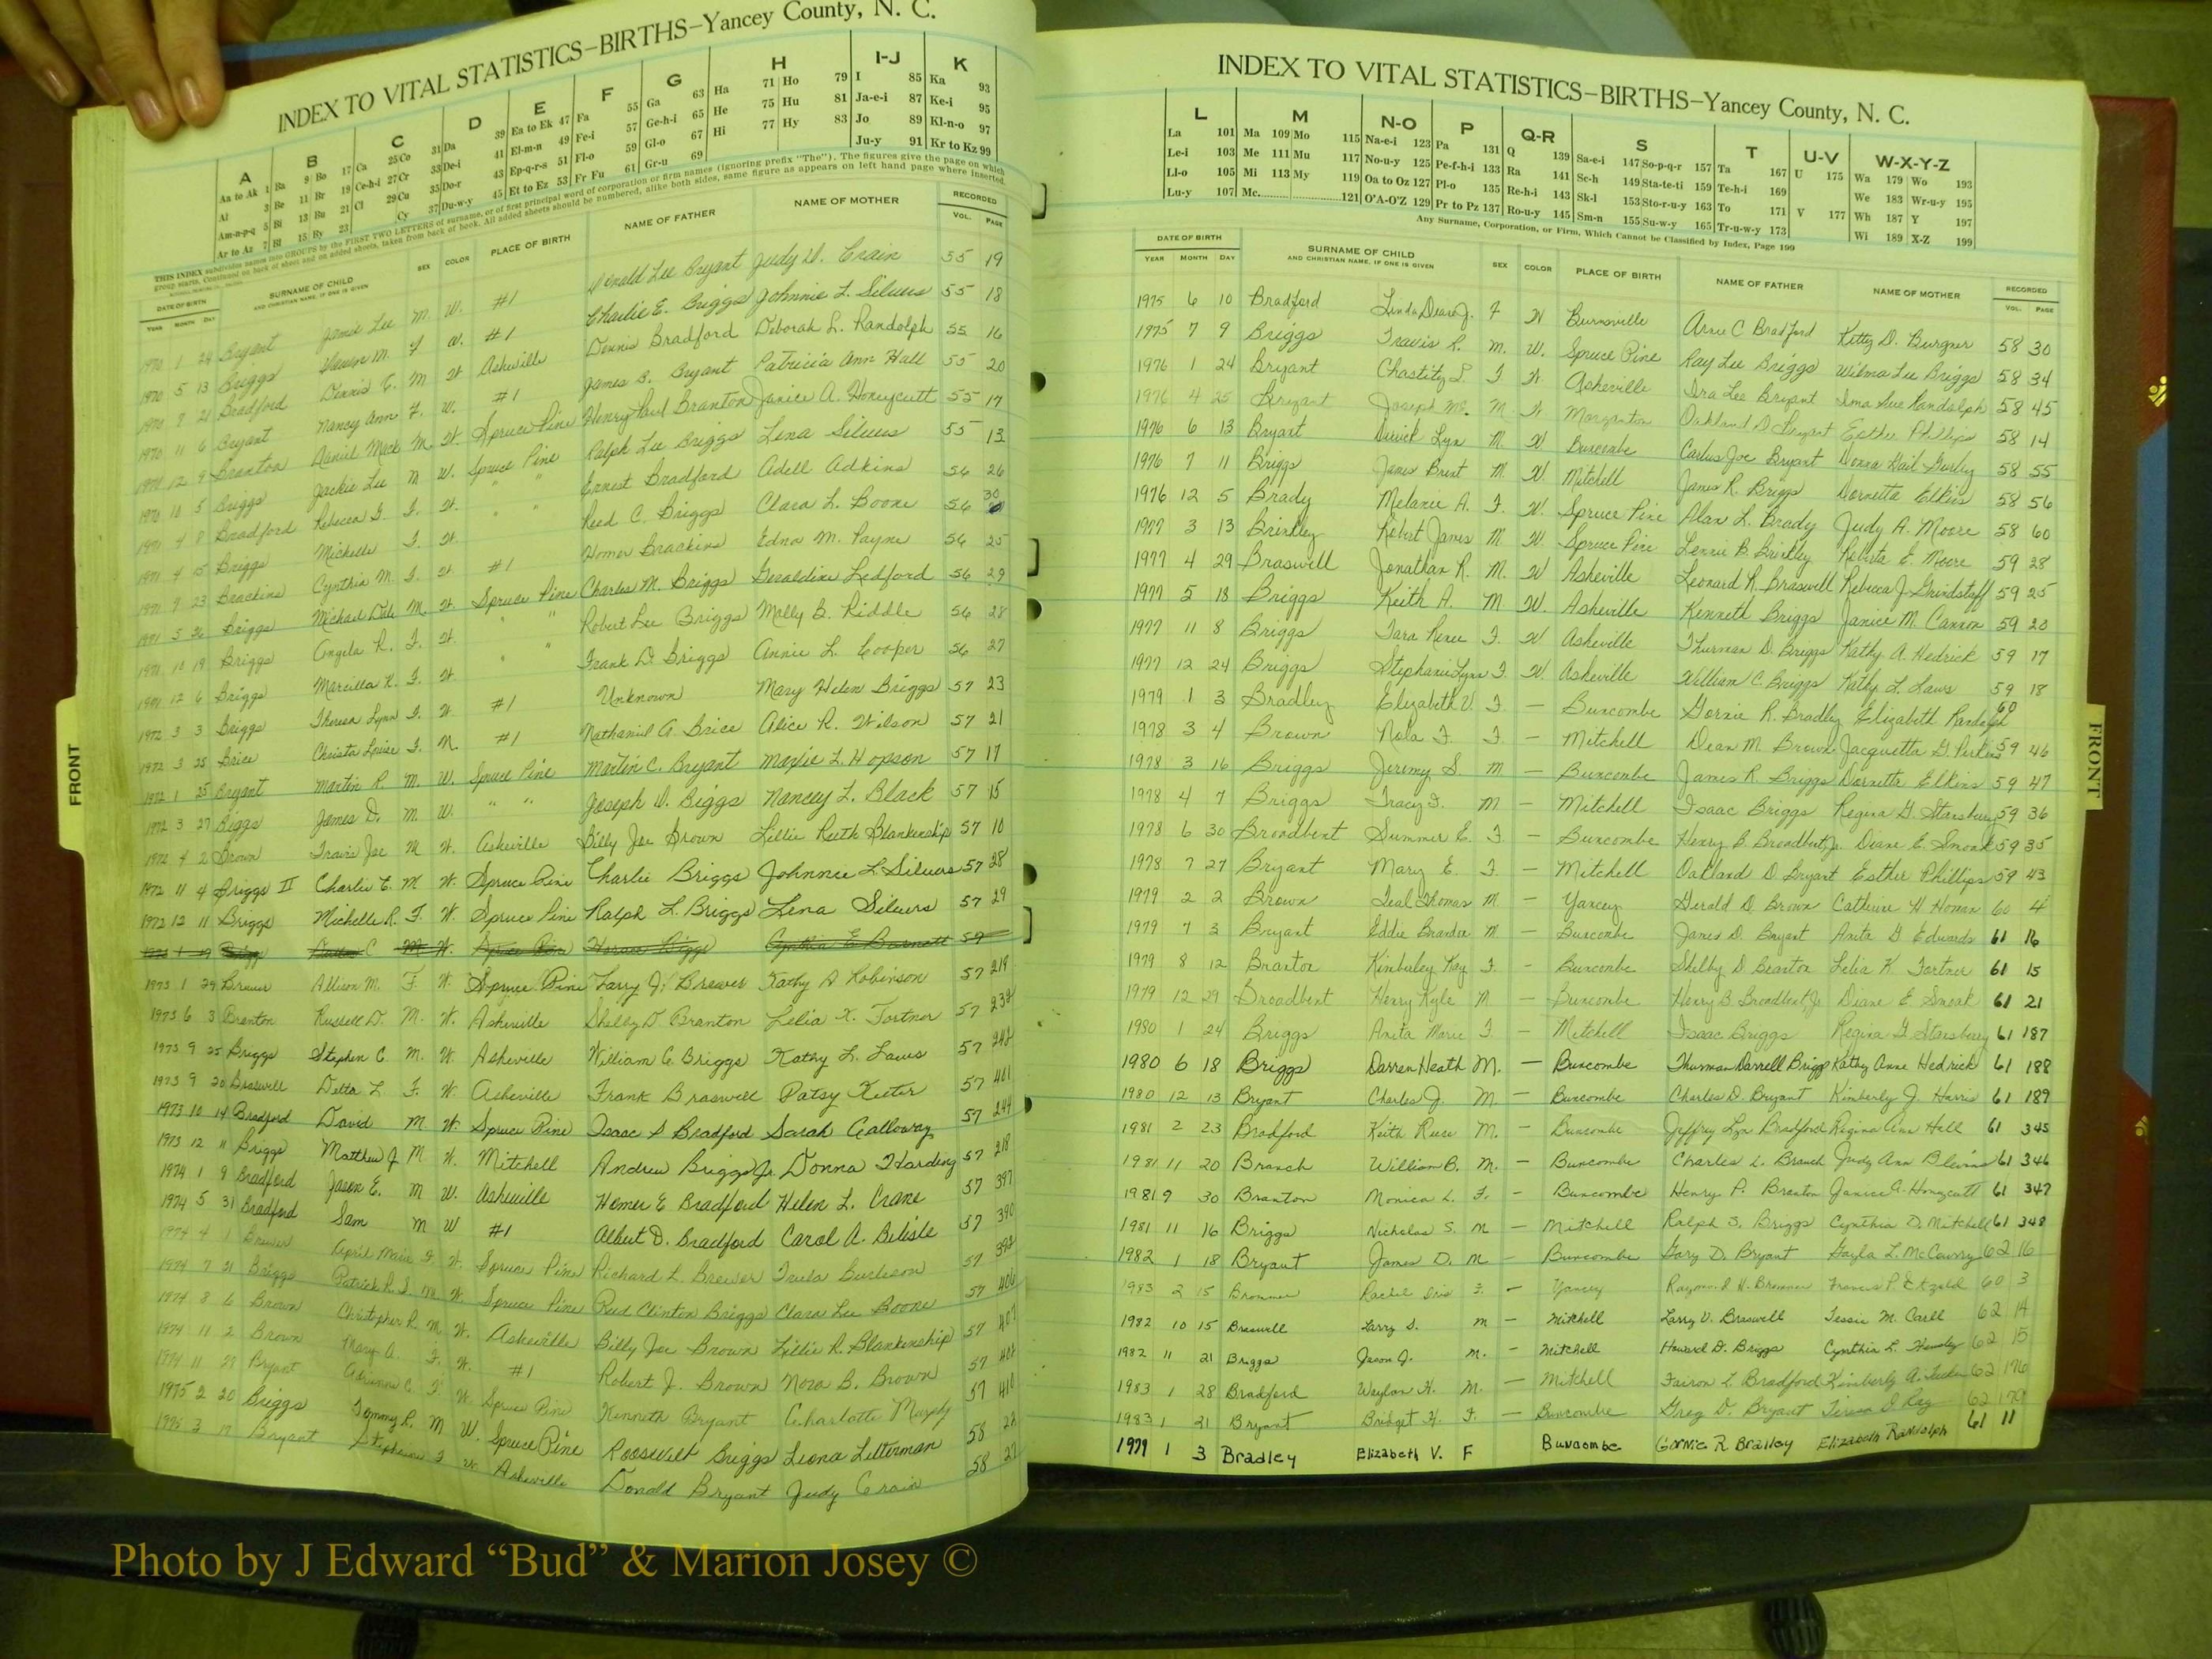 INDEX TO VITAL STATISTICS–BIRTHS–Yancey County, N. C.
A B C D E F G H I-J K
Aa to Ak 1 Ba 9 Bo 17 Ca 25 Co 31 Da 39 Ea to Ek 47 Fa 55 Ga 63 Ha 71 Ho 79 I 85 Ka 93
Al 3 Be 11 Br 19 Ce-h-i 27 Cr 33 De-i 41 El-m-n 49 Fe-i 57 Ge-h-i 65 He 75 Hu 81 Ja-e-i 87 Ke-i 95
Am-n-p-q 5 Bi 13 Bu 21 Cl 29 Cu 35 Do-r 43 Ep-q-r-s 51 Fl-o 59 Gl-o 67 Hi 77 Hy 83 Jo 89 Kl-n-o 97
Ar to Az 7 Bl 15 By 23 Cy 37 Du-w-y 45 Et to Ez 53 Fr Fu 61 Gr-u 69 Ju-y 91 Kr to Kz 99
THIS INDEX subdivides names into GROUPS by the FIRST TWO LETTERS of surname, or of first principal word of corporation or firm names (ignoring prefix "The"). The figures give the page on which
group starts. Continued on back of sheet and on added sheets, taken from back of book. All added sheets should be numbered, alike both sides, same figure as appears on left hand page where inserted.
DATE OF BIRTH SURNAME OF CHILD SEX COLOR PLACE OF BIRTH NAME OF FATHER NAME OF MOTHER RECORDED
YEAR MONTH DAY AND CHRISTIAN NAME, IF ONE IS GIVEN VOL. PAGE
1970 1 Bryant James Lee M. W. #1 Donald Lee Bryant Judy D. Crain 55 19
1970 5 13 Briggs M. F W. #1 Charlie E. Briggs Johnnie L. Silvers 55 18
1970 9 21 Bradford Dennis C. M W Asheville Dennis Bradford Deborah L. Randolph 55 16
1970 11 6 Bryant Nancy Ann F. W. #1 James B. Bryant Patricia Ann Hall 55 20
12 9 Branton Daniel Mack M. W. Spruce Pine Henry Paul Branton Janice A. Honeycutt 55 17
1970 10 5 Briggs Jackie Lee M W. Spruce Pine Ralph Lee Briggs Lena Silvers 55 13
1971 4 8 Bradford Rebecca G. F. W. " " Ernest Bradford Adell Adkins 56 26
1971 4 15 Briggs Michelle F. W. " " Reed C. Briggs Clara L. Boone 56 30
1971 9 23 Brackins Cynthia M. F. W. #1 Homer Brackins Edna M. Payne 56 25
1971 5 26 Briggs Michael Dale M. W. Spruce Pine Charles M. Briggs Geraldine Ledford 56 29
1971 10 19 Briggs Angela R. F. W. " " Robert Lee Briggs Molly B. Riddle 56 28
1971 12 6 Briggs Marcilla K. F. W. " " Frank D. Briggs Annie L. Cooper 56 27
1972 3 3 Briggs Theresa Lynn F. W. #1 Unknown Mary Helen Briggs 57 23
1972 3 25 Brice Christa Louise F. N. #1 Nathaniel G. Brice Alice R. Wilson 57 21
1972 1 25 Bryant Martin P. M. W. Spruce Pine Martin C. Bryant Maxie L. Hopson 57 17
1972 3 27 Biggs James D. M W. " " Joseph D. Biggs Nancy L. Black 57 15
1972 4 2 Brown Travis Joe M W. Asheville Billy Joe Brown Lillie Ruth Blankenship 57 10
1972 11 4 Briggs II Charlie E. M W. Spruce Pine Charlie Briggs Johnnie L. Silvers 57 28
1972 12 11 Briggs Michelle R. F. W. Spruce Pine Ralph L. Briggs Lena Silvers 57 29
C M W. Spruce Pine Horace Briggs Cynthia E. Burnett 57
1973 1 29 Brewer Allison M. F. W. Spruce Pine Larry J. Brewer Kathy A Robinson 57 219
1973 6 3 Branton Russell D. M. W. Asheville Shelby D. Branton Lelia K. Fortner 57 232
1973 9 25 Briggs Stephen C. M. W. Asheville William C. Briggs Kathy L. Laws 57 242
1973 9 20 Braswell Delta L. F. W. Asheville Frank Braswell Patsy Keeter 57 401
1973 10 14 Bradford David M W. Spruce Pine Isaac S Bradford Sarah Galloway 57 244
1973 12 11 Briggs Matthew J M W. Mitchell Andrew Briggs Jr. Donna Harding 57 218
1974 1 9 Bradford Jason E. M W. Asheville Homer E Bradford Helen L. Crane 57 397
1974 5 31 Bradford Sam M W #1 Albert D. Bradford Carol A. Belisle 57 390
1974 4 1 Brewer April Marie F. W. Spruce Pine Richard L. Brewer Trula Burleson 57 392
1974 7 21 Briggs Patrick R. S. M W. Spruce Pine Reed Clinton Briggs Clara Lee Boone 57 406
1974 8 6 Brown Christopher R. M. W. Asheville Billy Joe Brown Lillie R. Blankenship 57 407
1974 11 2 Brown Mary A. F. W. #1 Robert J. Brown Nora B. Brown 57 408
1974 11 28 Bryant C. F. W. Spruce Pine Kenneth Bryant Charlotte Murphy 57 410
1975 2 20 Briggs Tommy R. M W. Spruce Pine Roosevelt Briggs Leona Letterman 58 28
1975 3 17 Bryant Stephanie F W. Asheville Donald Bryant Judy Crain 58 27
FRONT
INDEX TO VITAL STATISTICS–BIRTHS–Yancey County, N. C.
L M N-O P Q-R S T U-V W-X-Y-Z
La 101 Ma 109 Mo 115 Na-e-i 123 Pa 131 Q 139 Sa-e-i 147 So-p-q-r 157 Ta 167 U 175 Wa 179 Wo 193
Le-i 103 Me 111 Mu 117 No-u-y 125 Pe-f-h-i 133 Ra 141 Sc-h 149 Sta-te-ti 159 Te-h-i 169 We 183 Wr-u-y 195
Ll-o 105 Mi 113 My 119 Oa to Oz 127 Pl-o 135 Re-h-i 143 Sk-l 153 Sto-r-u-y 163 To 171 V 177 Wh 187 Y 197
Lu-y 107 Mc 121 O'A-O'Z 129 Pr to Pz 137 Ro-u-y 145 Sm-n 155 Su-w-y 165 Tr-u-w-y 173 Wi 189 X-Z 199
Any Surname, Corporation, or Firm, Which Cannot be Classified by Index, Page 199
DATE OF BIRTH SURNAME OF CHILD SEX COLOR PLACE OF BIRTH NAME OF FATHER NAME OF MOTHER RECORDED
YEAR MONTH DAY AND CHRISTIAN NAME, IF ONE IS GIVEN VOL. PAGE
1975 6 10 Bradford Linda F W Burnsville Arne C Bradford Kitty D. Burgner 58 30
1975 7 9 Briggs Travis R. M. W. Spruce Pine Ray Lee Briggs Wilma Lee Briggs 58 34
1976 1 24 Bryant Chastity L. F W. Asheville Ira Lee Bryant Ima Sue Randolph 58 45
1976 4 25 Bryant Joseph Mc. M W Morganton Oakland D Bryant Esther Phillips 58 14
1976 6 13 Bryant Derrick Lyn M W Buncombe Carlus Joe Bryant Donna Gail Gurley 58 55
1976 7 11 Briggs James Brent M. W. Mitchell James R. Briggs Dornetta Elkins 58 56
1976 12 5 Brady Melanie A. F. W. Spruce Pine Alan L. Brady Judy A. Moore 58 60
1977 3 13 Brinkley Robert James M W Spruce Pine Lennie B. Brinkley Roberta E. Moore 59 28
1977 4 29 Braswell Jonathan R. M. W Asheville Leonard R. Braswell Rebecca J. Grindstaff 59 25
1977 5 18 Briggs Keith A. M W. Asheville Kenneth Briggs Janice M. Cannon 59 20
1977 11 8 Briggs Tara Renee F. W Asheville Thurman D. Briggs Kathy A. Hedrick 59 17
1977 12 24 Briggs Stephanie Lynn F. W. Asheville William C. Briggs Kathy L. Laws 59 18
1979 1 3 Bradley Elizabeth V. F. – Buncombe Gornie R. Bradley Elizabeth Randolph 60
1978 3 4 Brown Nola F. F. – Mitchell Dean M. Brown Jacquetta G. Perkins 59 46
1978 3 16 Briggs Jeremy S. M – Buncombe James R. Briggs Dornetta Elkins 59 47
1978 4 7 Briggs Tracy F. M – Mitchell Isaac Briggs Regina G. Stansbury 59 36
1978 6 30 Broadbent Summer E. F. – Buncombe Henry B. Broadbent Jr. Diane E. Smoak 59 35
1978 7 27 Bryant Mary E. F. – Mitchell Oakland D. Bryant Esther Phillips 59 43
1979 2 2 Brown Teal Thomas M. – Yancey Gerald D. Brown Catherine H Homan 60 4
1979 7 3 Bryant Eddie Brandon M – Buncombe James D. Bryant Anita G Edwards 61 16
1979 8 12 Branton Kimberley Kay F. – Buncombe Shelby D Branton Lelia K. Fortner 61 15
1979 12 29 Broadbent Henry Kyle M. – Buncombe Henry B Broadbent, Jr. Diane E. Smoak 61 21
1980 1 24 Briggs Anita Marie F – Mitchell Isaac Briggs Regina G Stansbury 61 187
1980 6 18 Briggs Darren Heath M. – Buncombe Thurman Darrell Briggs Kathy Anne Hedrick 61 188
1980 12 13 Bryant Charles J. M – Buncombe Charles D. Bryant Kimberly J. Harris 61 189
1981 2 23 Bradford Keith Reese M. – Buncombe Jeffrey Lyn Bradford Regina Ann Hall 61 345
1981 11 20 Branch William B. M. – Buncombe Charles L. Branch Judy Ann Blevins 61 346
1981 9 30 Branton Monica L. F. – Buncombe Henry P. Branton Janice A. Honeycutt 61 347
1981 11 16 Briggs Nicholas S. M – Mitchell Ralph S. Briggs Cynthia D. Mitchell 61 348
1982 1 18 Bryant James D. M – Buncombe Gary D. Bryant Gayla L. McCourry 62 16
1983 2 15 Brommer Rachel Iris F. – Yancey Raymond H. Brommer Frances P. Etzold 60 3
1982 10 15 Braswell Larry D. M – Mitchell Larry D. Braswell Tessie M. Carll 62 14
1982 11 21 Briggs Jason J. M. – Mitchell Howard D. Briggs Cynthia L. Hensley 62 15
1983 1 28 Bradford Waylon H. M. – Mitchell Fairon L. Bradford Kimberly A. 62 176
1983 1 21 Bryant Bridget H. F. – Buncombe Greg D. Bryant Teresa D Ray 62 179
1979 1 3 Bradley Elizabeth V. F Buncombe Gornie R Bradley Elizabeth Randolph 61 11
FRONT
Photo by J Edward “Bud” & Marion Josey ©